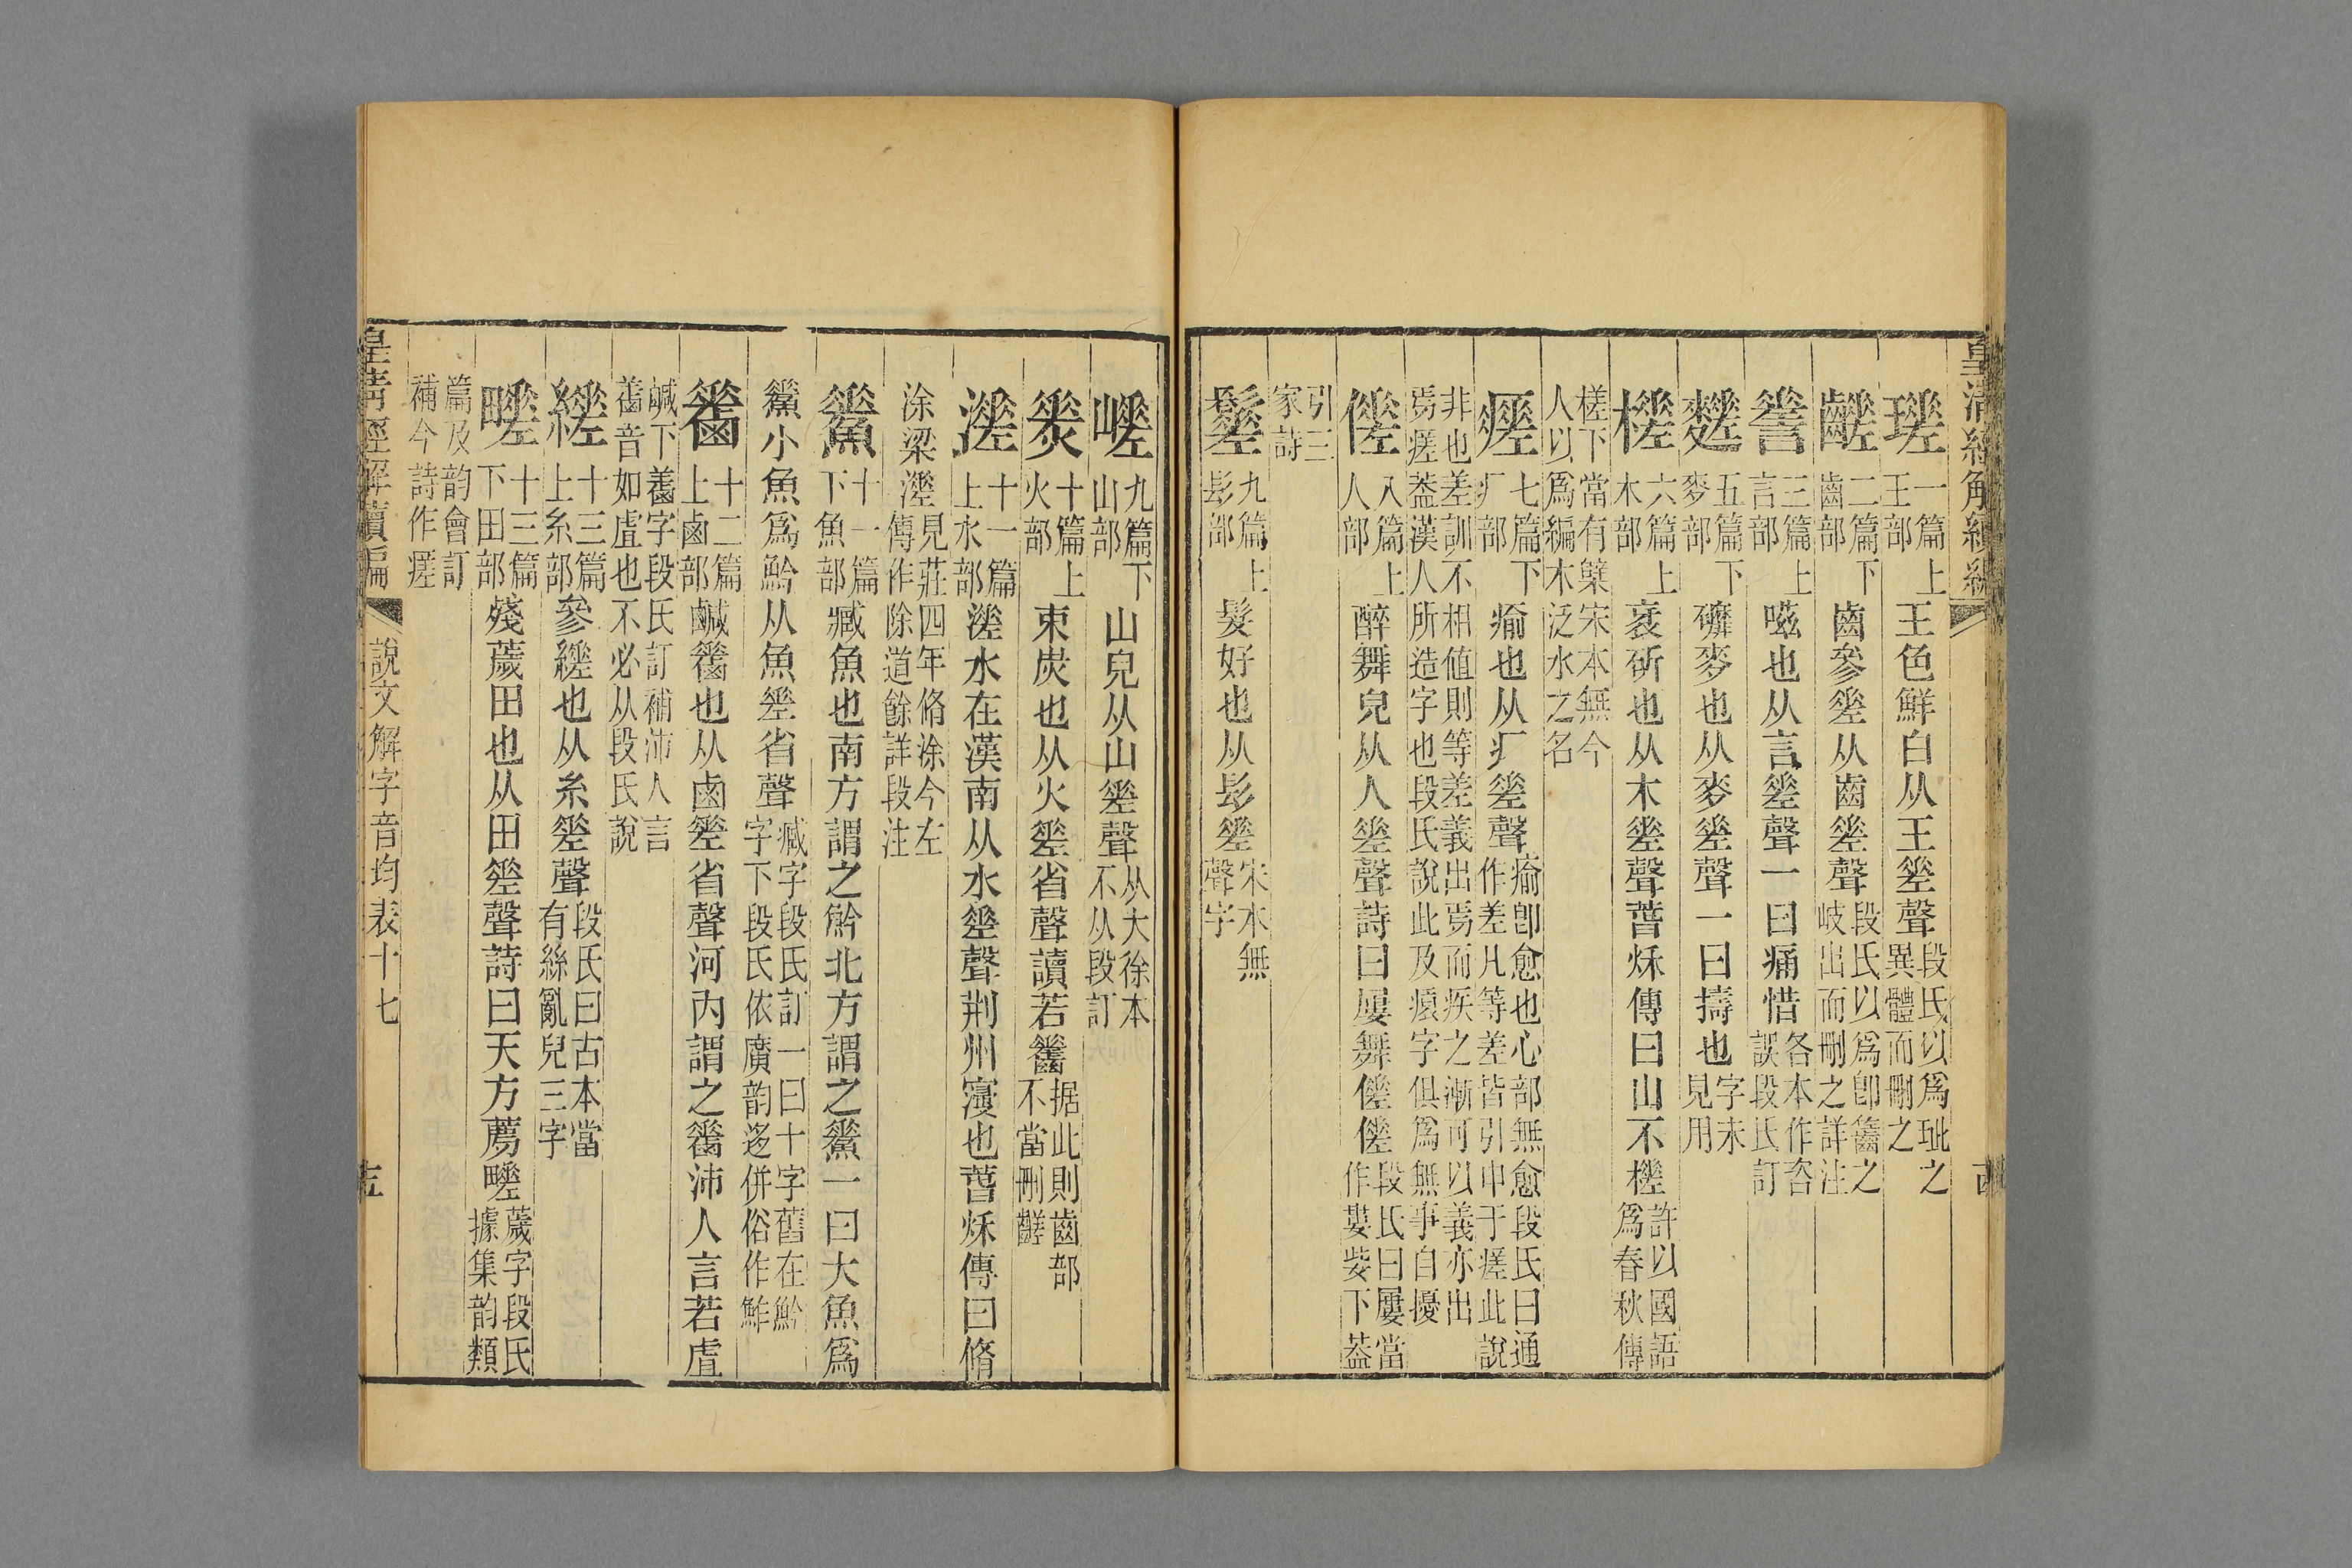 皇清經解續編
瑳一篇上王部王色鮮白从王㕀聲段氏以爲玼之異體而刪之
齹二篇下齒部齒參差从齒差聲段氏以爲卽䶒之岐出而刪之詳注
𧪘三篇上言部嗞也从言差聲一曰痛惜各本作咨誤段氏訂
䴾五篇下麥部䃺麥也从麥差聲一曰擣也字未見用
槎六篇上木部衺斫也从木差聲春秋傳曰山不槎許以國語爲春秋傳
槎下當有櫱宋本無今人以爲編木泛水之名
瘥七篇下疒部瘉也从疒差聲瘉卽愈也心部無愈段氏曰通作差凡等差皆引申于瘥此說
非也差訓不相值則等差義出焉而疾之漸可以義亦出焉瘥葢漢人所造字也段氏說此及瘼字俱爲無事自擾
傞八篇上人部醉舞皃从人差聲詩曰屢舞傞傞段氏曰屢當作婁姕下葢
引三家詩
鬊九篇上髟部髮好也从髟差聲宋本無聲字
嵯九篇下山部山皃从山差聲从大徐本不从段訂
𤆍十篇上火部束炭也从火差省聲讀若齹据此則齒部不當刪齹
溠十一篇上水部溠水在漢南从水差聲荆州浸也春秋傳曰脩
涂梁溠見莊四年脩涂今左傳作除道餘詳段注
鮺十一篇下魚部臧魚也南方謂之䰼北方謂之鮺一曰大魚爲
鮺小魚爲䰼从魚差省聲臧字段氏訂一曰十字舊在䰼字下段氏依廣韵迻併俗作鮓
䴝十二篇上鹵部鹹䴝也从鹵差省聲河內謂之䴝沛人言若虘
鹹下䴝字段氏訂補沛人言䴝音如虘也不必从段氏說
縒十三篇上糸部參縒也从糸差聲段氏曰古本當有絲亂皃三字
𤲞十三篇下田部殘薉田也从田差聲詩曰天方薦𤲞薉字段氏據集韵類
篇及韵會訂補今詩作瘥
皇淸經解續編
說文解字音均表十七